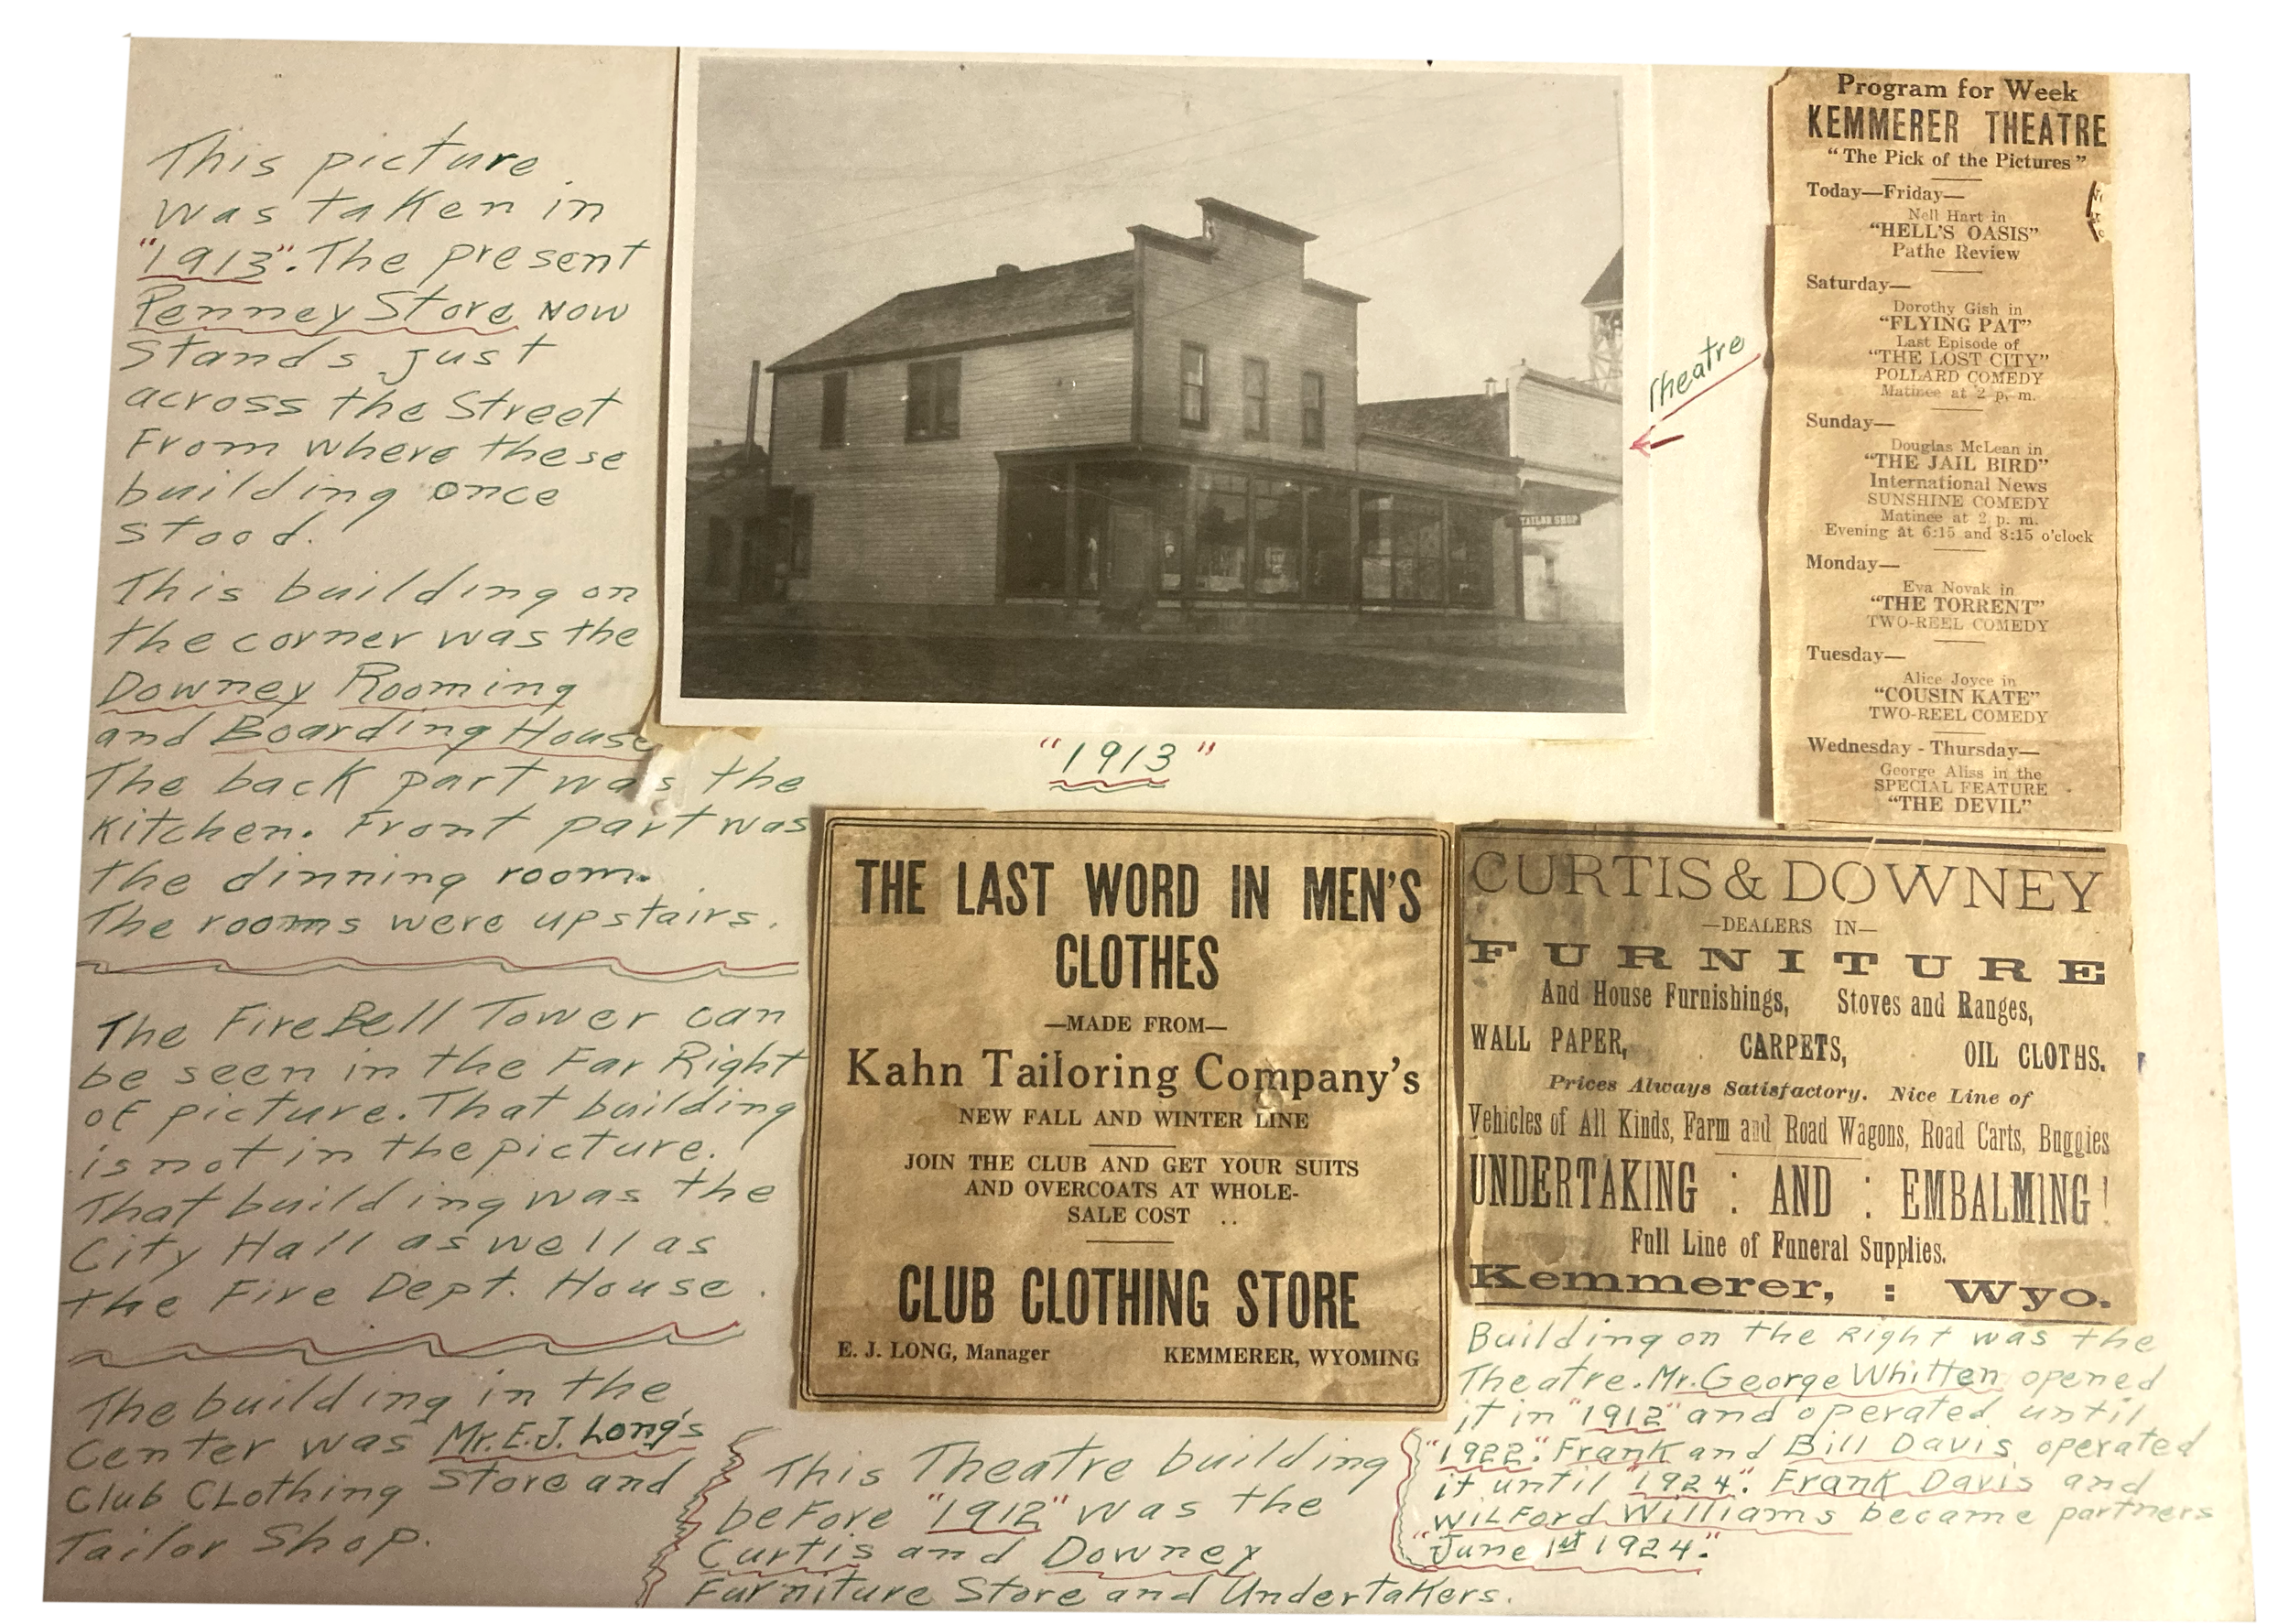 This picture
was taken in
"1913". The present
Penney Store now
stands just
across the Street
From where these
building once
stood.
This building on
the corner was the
Downey Rooming
and Boarding House
The back part was the
Kitchen. Front part was
the dinning room.
The rooms were upstairs.
The Fire Bell Tower can
be seen in the Far Right
of picture. That building
is not in the picture.
That building was the
City Hall as well as
the Fire Dept. House.
The building in the
Center was Mr. E.J. Long's
Club Clothing Store and
Tailor Shop.
TAILOR SHOP
Theatre
"1913"
Program for Week
KEMMERER THEATRE
"The Pick of the Pictures"
Today—Friday—
Nell Hart in
"HELL'S OASIS"
Pathe Review
Saturday—
Dorothy Gish in
"FLYING PAT"
Last Episode of
"THE LOST CITY"
POLLARD COMEDY
Matinee at 2 p. m.
Sunday—
Douglas McLean in
"THE JAIL BIRD"
International News
SUNSHINE COMEDY
Matinee at 2 p. m.
Evening at 6:15 and 8:15 o'clock
Monday—
Eva Novak in
"THE TORRENT"
TWO-REEL COMEDY
Tuesday—
Alice Joyce in
"COUSIN KATE"
TWO-REEL COMEDY
Wednesday - Thursday—
George Aliss in the
SPECIAL FEATURE
"THE DEVIL"
THE LAST WORD IN MEN'S
CLOTHES
—MADE FROM—
Kahn Tailoring Company's
NEW FALL AND WINTER LINE
JOIN THE CLUB AND GET YOUR SUITS
AND OVERCOATS AT WHOLE-
SALE COST ..
CLUB CLOTHING STORE
E. J. LONG, Manager KEMMERER, WYOMING
CURTIS & DOWNEY
—DEALERS IN—
FURNITURE
And House Furnishings, Stoves and Ranges,
WALL PAPER, CARPETS, OIL CLOTHS.
Prices Always Satisfactory. Nice Line of
Vehicles of All Kinds, Farm and Road Wagons, Road Carts, Buggies
UNDERTAKING : AND : EMBALMING!
Full Line of Funeral Supplies.
Kemmerer, : Wyo.
This Theatre building
before "1912" was the
Curtis and Downey
Furniture Store and Undertakers.
Building on the Right was the
Theatre. Mr. George Whitten opened
it in "1912" and operated until
"1922". Frank and Bill Davis operated
it until "1924". Frank Davis and
Wilford Williams became partners
"June 1st 1924."